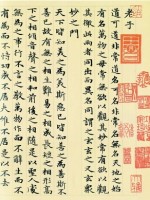 老子
道可道非常道名可名非常名無名天地始
有名萬物之母常無欲以觀其妙常有欲以觀
其徼此兩者同出而異名同謂之玄玄之又玄眾
妙之門
天下皆知美之為美斯惡已皆知善之為善斯
不善已故有無相生難易相成長短相形高
下相傾音聲相和前後相隨是以聖人處無
為之事行不言之教萬物作而不辭生而不
有為而不恃功成不居夫惟不居是以不去